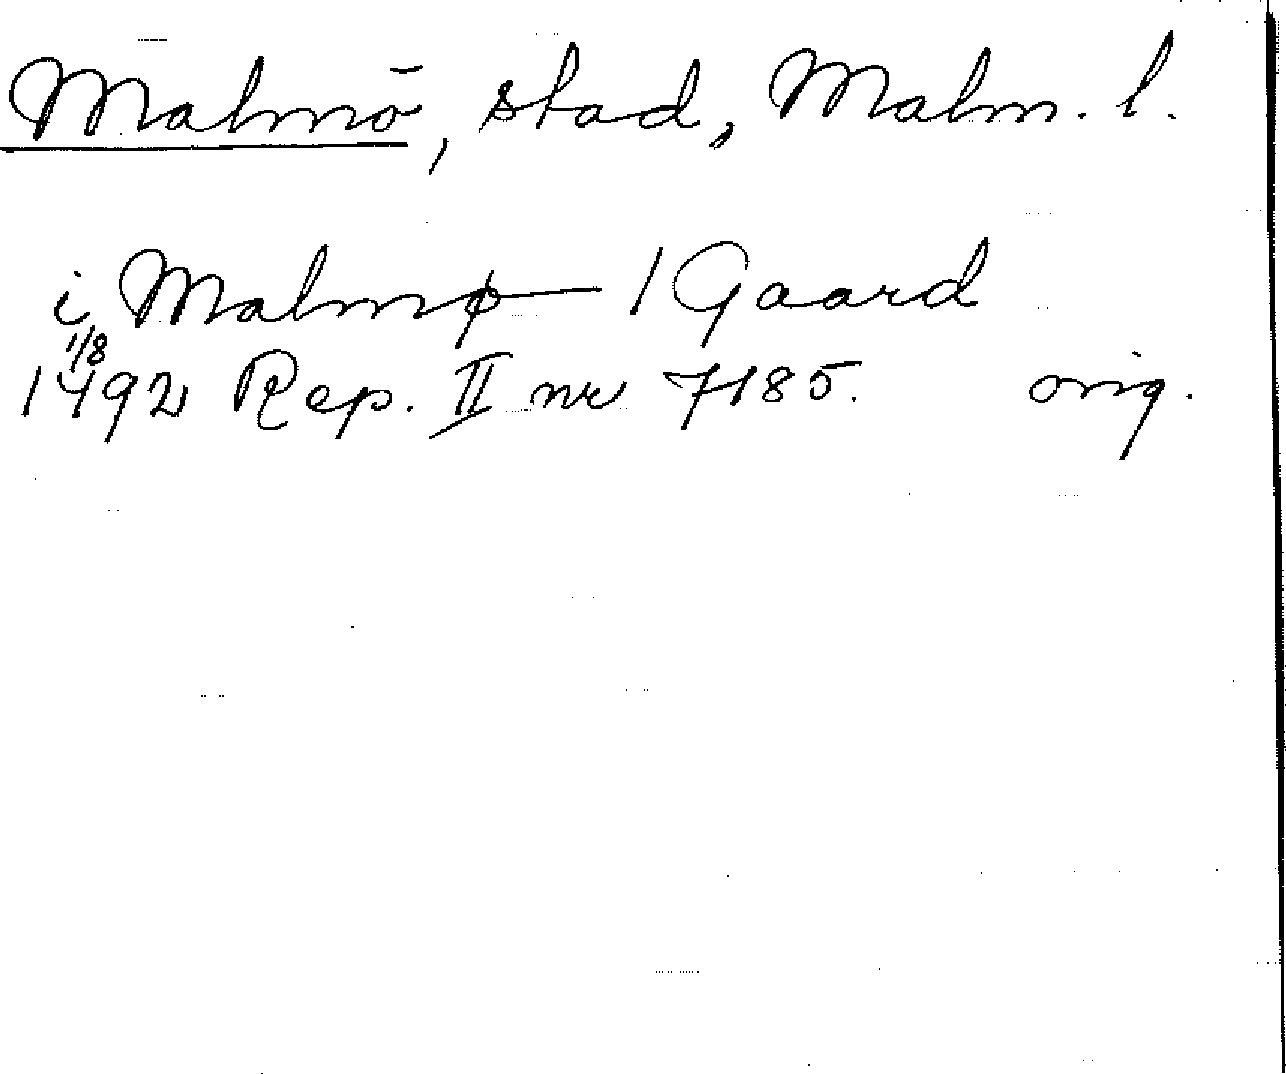 Malmö, stad, Malm. l.
i Malmø 1 Gaard
1/8
1492 Rep. II nr 7185. orig.